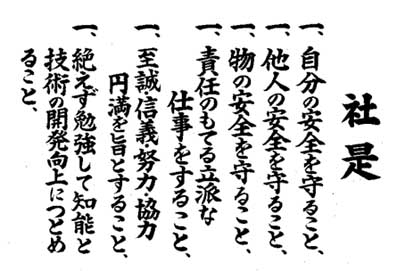 社是
一、自分の安全を守ること、
一、他人の安全を守ること、
一、物の安全を守ること、
一、責任のもてる立派な
仕事をすること、
一、至誠・信義・努力・協力
円満を旨とすること、
一、絶えず勉強して知能と
技術の開発向上につとめ
ること、